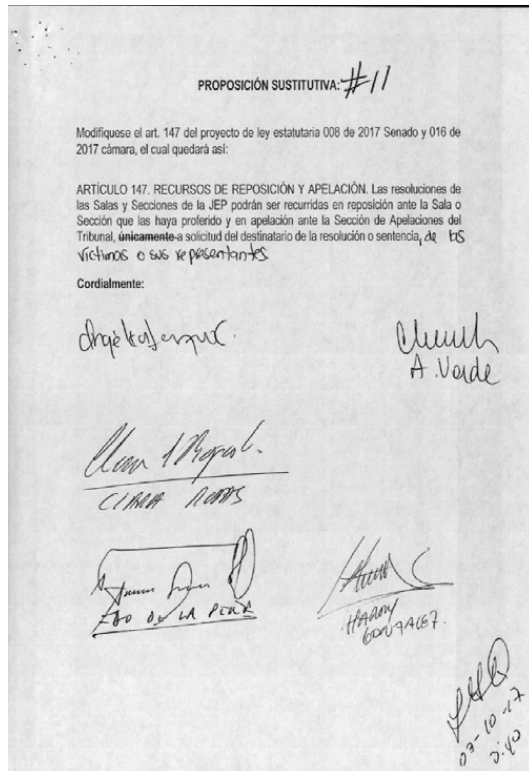 PROPOSICIÓN SUSTITUTIVA: #11
Modifíquese el art. 147 del proyecto de ley estatutaria 008 de 2017 Senado y 016 de
2017 cámara, el cual quedará así:
ARTÍCULO 147. RECURSOS DE REPOSICIÓN Y APELACIÓN. Las resoluciones de
las Salas y Secciones de la JEP podrán ser recurridas en reposición ante la Sala o
Sección que las haya proferido y en apelación ante la Sección de Apelaciones del
Tribunal, únicamente a solicitud del destinatario de la resolución o sentencia, de las
víctimas o sus representantes
Cordialmente:
A. Verde
CLARA ROJAS
EDO DE LA PEÑA
HARRY
GONZALEZ.
03-10-17